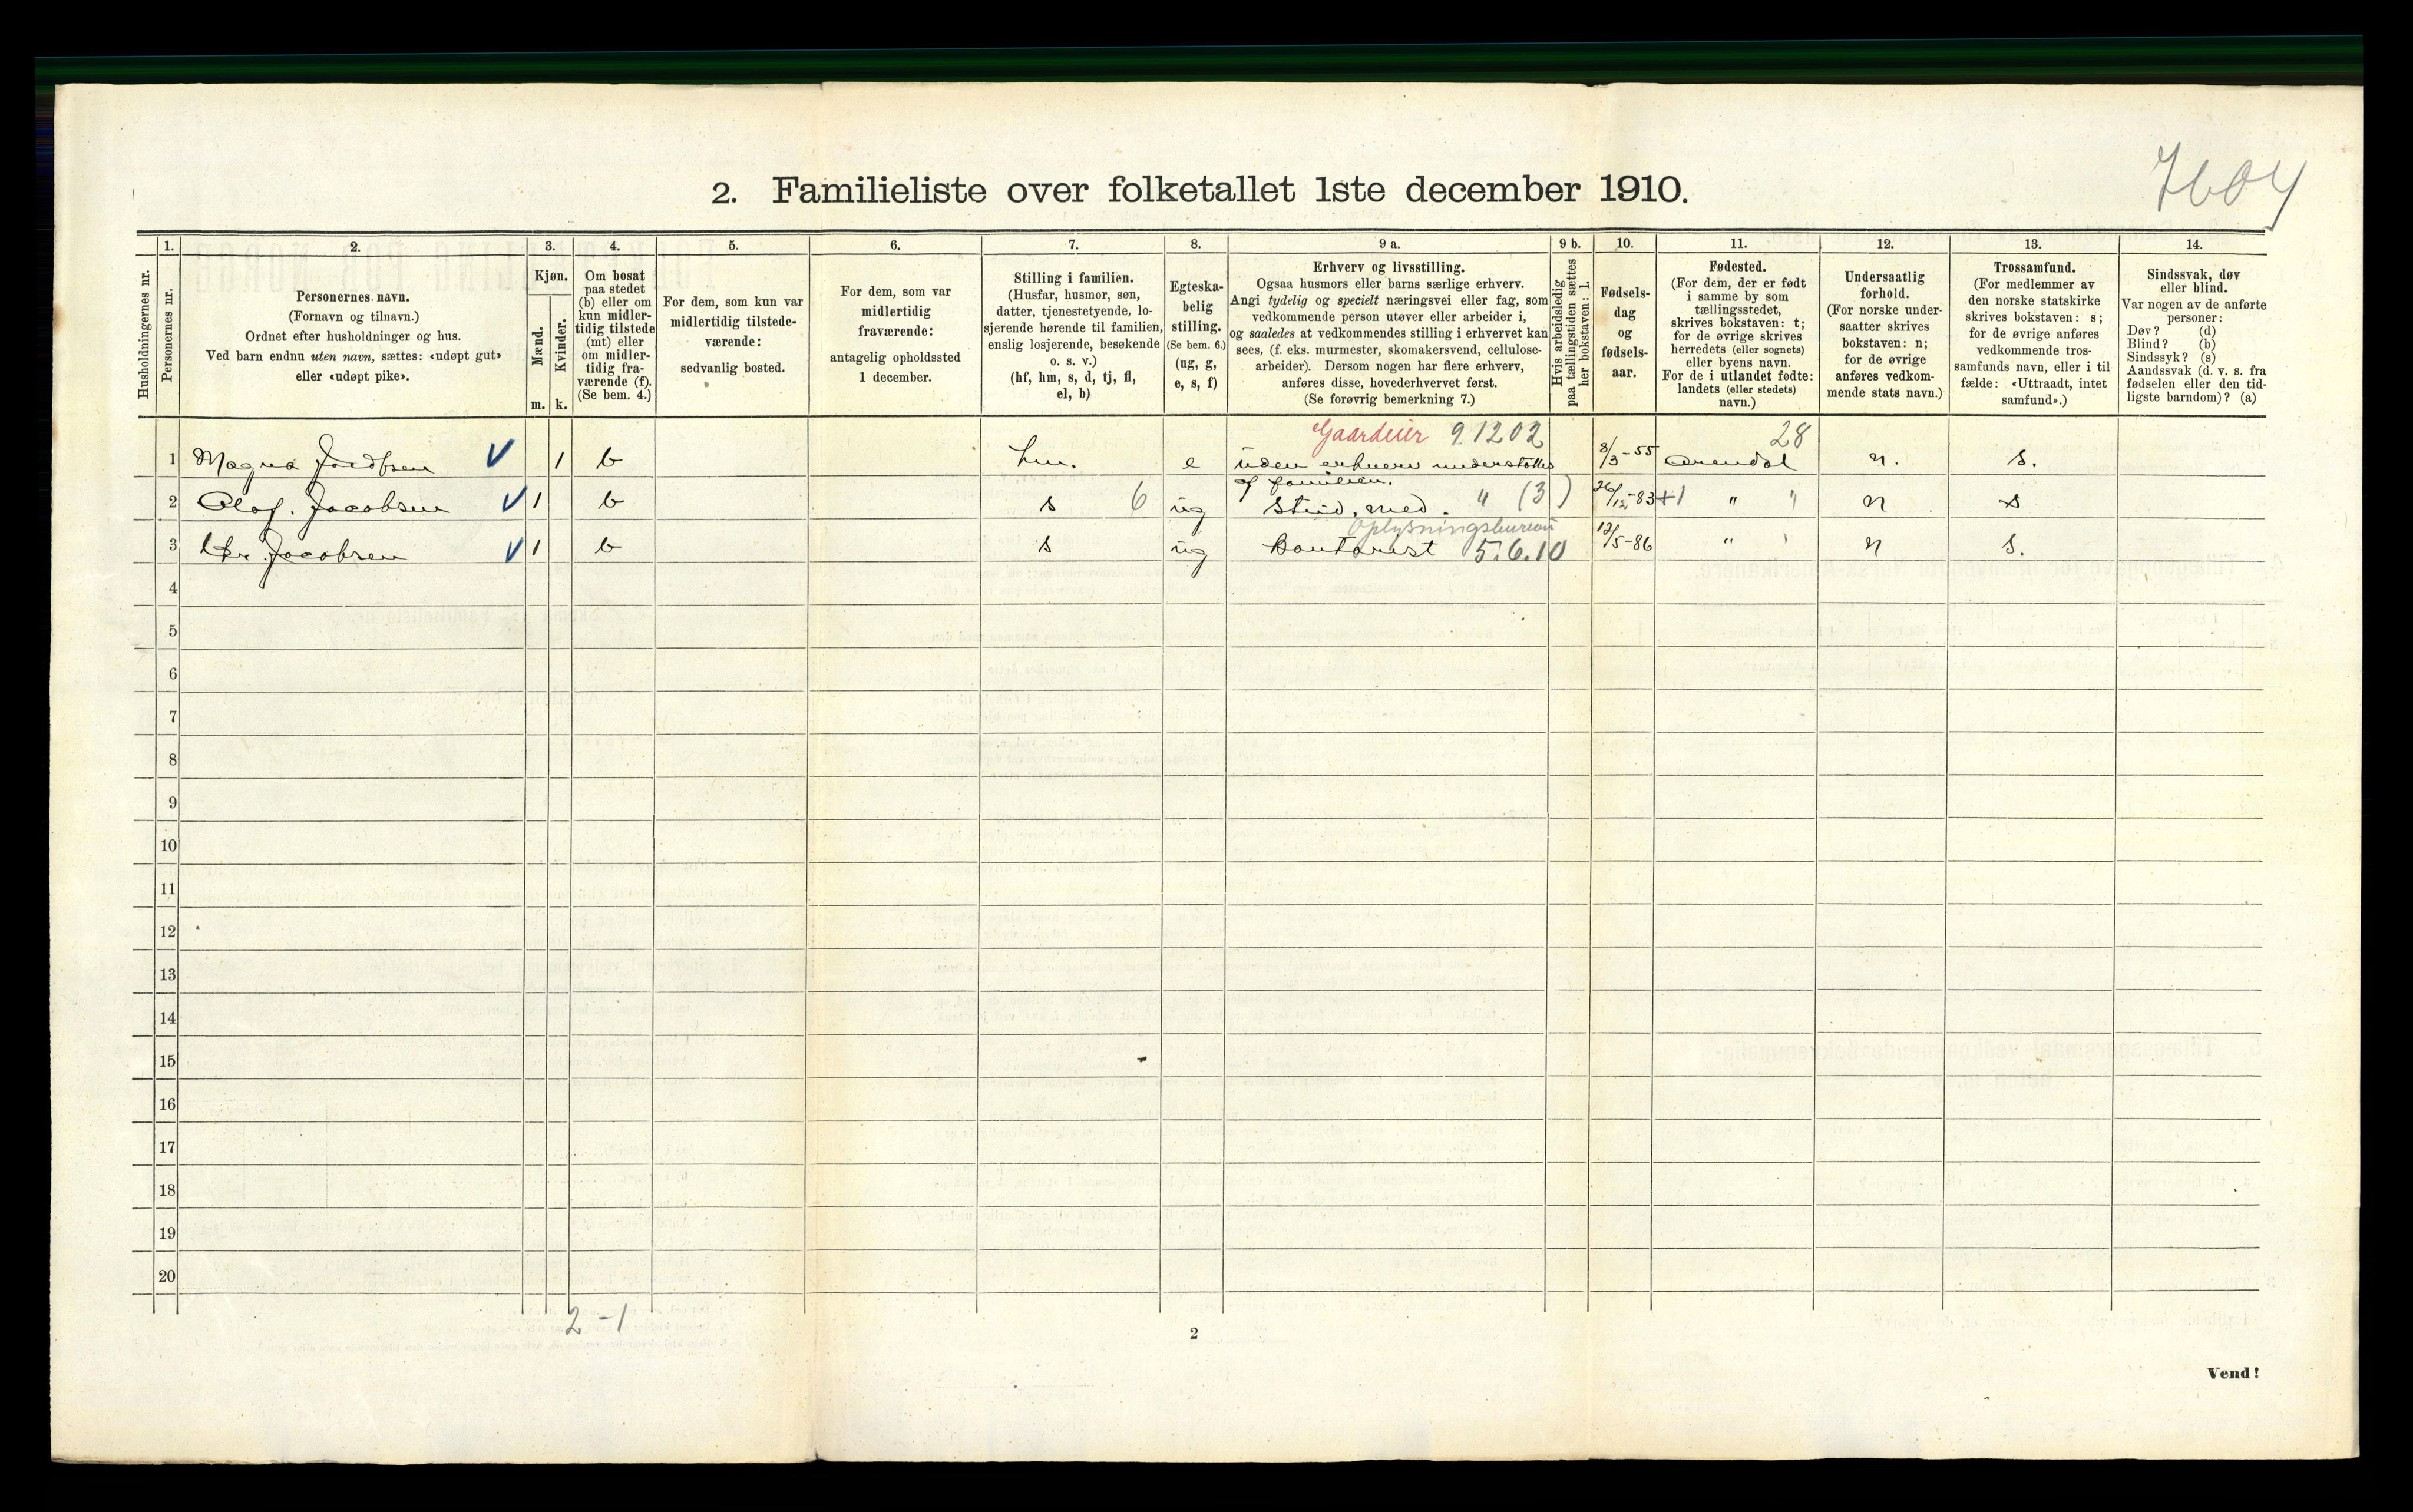 7604
2. Familieliste over folketallet 1ste december 1910.
Husholdningernes nr.
1.
Personernes nr.
2.
Personernes navn.
(Fornavn og tilnavn.)
Ordnet efter husholdninger og hus.
Ved barn endnu uten navn, sættes: «udøpt gut»
eller «udøpt pike».
3.
Kjøn.
Mænd.
Kvinder.
m. k.
4.
Om bosat
paa stedet
(b) eller om
kun midler-
tidig tilstede
(mt) eller
om midler-
tidig fra-
værende (f).
(Se bem. 4.)
5.
For dem, som kun var
midlertidig tilstede-
værende:
sedvanlig bosted.
6.
For dem, som var
midlertidig
fraværende:
antagelig opholdssted
1 december.
7.
Stilling i familien.
(Husfar, husmor, søn,
datter, tjenestetyende, lo-
sjerende hørende til familien,
enslig losjerende, besøkende
o. s. v.)
(hf, hm, s, d, tj, fl,
el, b)
8.
Egteska-
belig
stilling.
(Se bem. 6.)
(ug, g,
e, s, f)
9 a.
Erhverv og livsstilling.
Ogsaa husmors eller barns særlige erhverv.
Angi tydelig og specielt næringsvei eller fag, som
vedkommende person utøver eller arbeider i,
og saaledes at vedkommendes stilling i erhvervet kan
sees, (f. eks. murmester, skomakersvend, cellulose-
arbeider). Dersom nogen har flere erhverv,
anføres disse, hovederhvervet først.
(Se forøvrig bemerkning 7.)
9 b.
Hvis arbeidsledig
paa tællingstiden sættes
her bokstaven: l.
10.
Fødsels-
dag
og
fødsels-
aar.
11.
Fødested.
(For dem, der er født
i samme by som
tællingsstedet,
skrives bokstaven: t;
for de øvrige skrives
herredets (eller sognets)
eller byens navn.
For de i utlandet fødte:
landets (eller stedets)
navn.)
12.
Undersaatlig
forhold.
(For norske under-
saatter skrives
bokstaven: n;
for de øvrige
anføres vedkom-
mende stats navn.)
13.
Trossamfund.
(For medlemmer av
den norske statskirke
skrives bokstaven: s;
for de øvrige anføres
vedkommende tros-
samfunds navn, eller i til
fælde: «Uttraadt, intet
samfund».)
14.
Sindssvak, døv
eller blind.
Var nogen av de anførte
personer:
Døv? (d)
Blind? (b)
Sindssyk? (s)
Aandssvak (d. v. s. fra
fødselen eller den tid-
ligste barndom)? (a)
Gaardeier 9.1202 28
1 Magna V 1 b hm. e uden erhverv understøttes 8/3-55 Arendal n. s.
af familien.
2 Olaf. Jacobsen V 1 b s 6 ug Stud. med. " (3) 26/12-83 +1 " " n s
Oplysningsbureau
3 Chr. Jacobsen V 1 b s ug Kontorist 5.6.10 12/5-86 " " n s.
4
5
6
7
8
9
10
11
12
13
14
15
16
17
18
19
20
2-1
2
Vend!